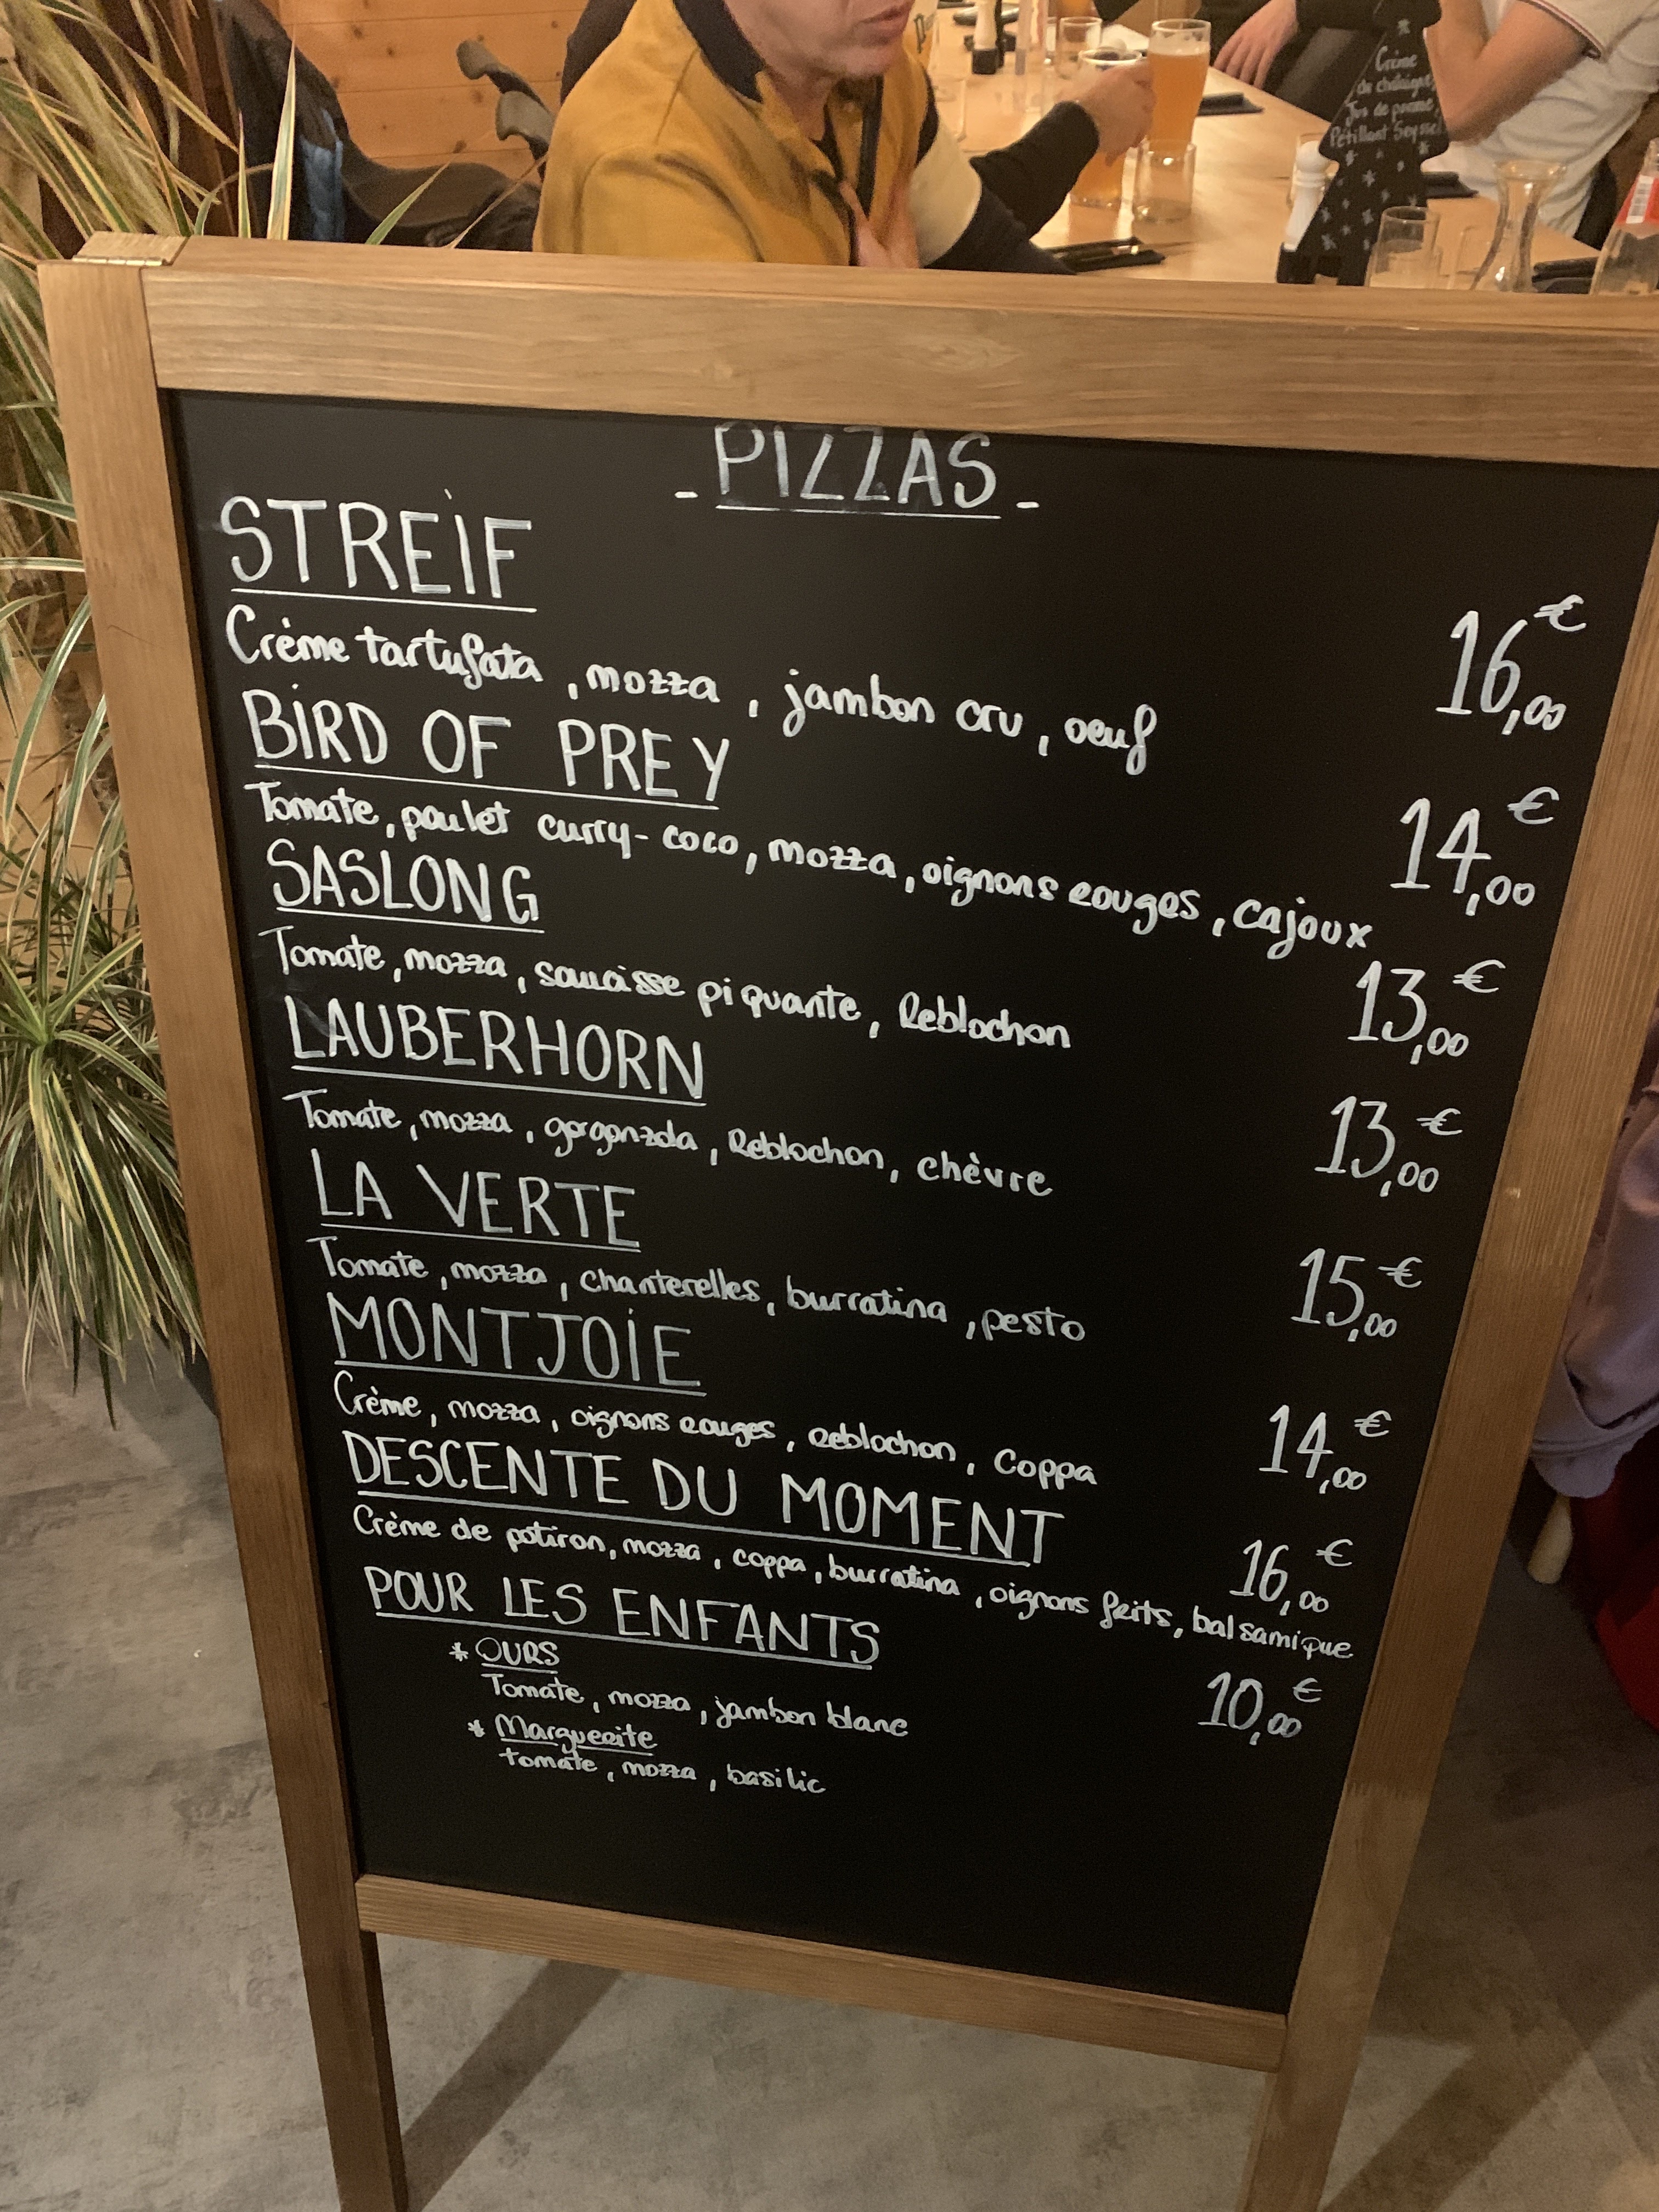 Crème
de châtaignes
Jus de pomme,
Pétillant Seyssel
- PIZZAS -
STREIF
16,00 €
Crème tartufata, mozza, jambon cru, oeuf
BIRD OF PREY
14,00 €
Tomate, poulet curry-coco, mozza, oignons rouges, cajoux
SASLONG
13,00 €
Tomate, mozza, saucisse piquante, Reblochon
LAUBERHORN
13,00 €
Tomate, mozza, gorgonzola, Reblochon, chèvre
LA VERTE
15,00 €
Tomate, mozza, chanterelles, burratina, pesto
MONTJOIE
14,00 €
Crème, mozza, oignons rouges, reblochon, Coppa
DESCENTE DU MOMENT
16,00 €
Crème de potiron, mozza, coppa, burratina, oignons frits, balsamique
POUR LES ENFANTS
10,00 €
* OURS
Tomate, mozza, jambon blanc
* Marguerite
tomate, mozza, basilic